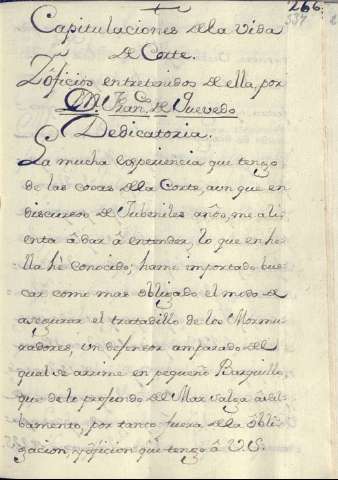 266.
337.
Capitulaciones de la vida
de Corte.
Y oficios entretenidos de ella, por
Dn. Fran.co de Quevedo
Dedicatoria.
La mucha experiencia que tengo
de las cosas de la Corte, aun que en
discursos de Jubeniles años, me ali-
enta â dar â entender, lo que en he-
lla hê conocido; hame importado bus-
car como mas obligado el modo de
asegurar el tratadillo de los Mormu-
radores, un defensor amparado del
qual se arrime mi pequeño Barquillo,
que de lo profundo del Mar salga â sal-
bamento, por tanto fuera de la obli-
gacion, y aficion que tengo â V.S.